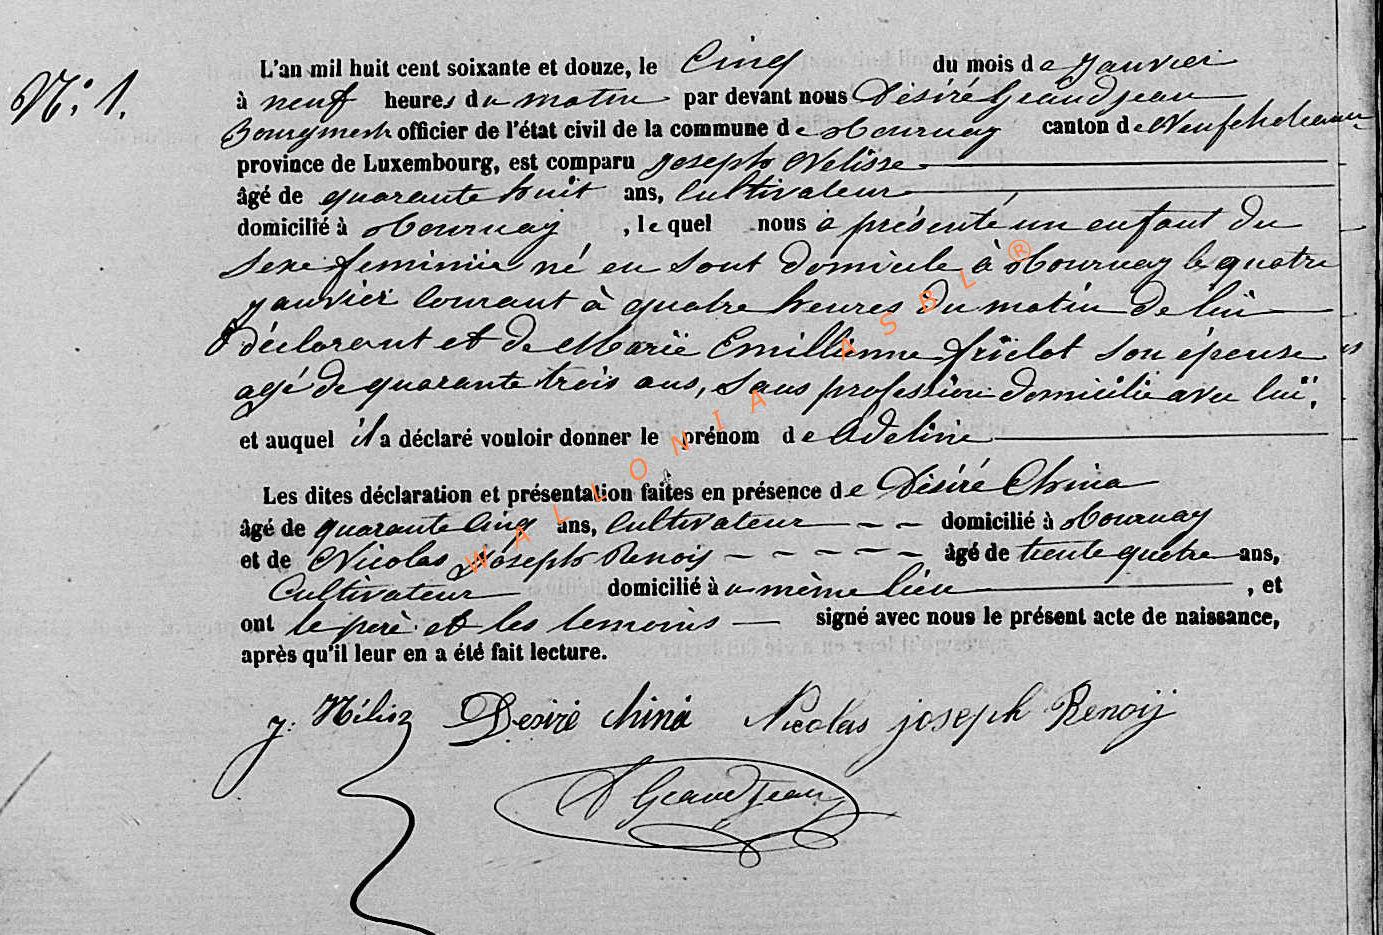 N.o 1.
L'an mil huit cent soixante et douze, le Cinq du mois de Janvier
à neuf heures du matin par devant nous Désiré Grandjean
Bourgmestre officier de l'état civil de la commune de Tournay canton de Neufchateau
province de Luxembourg, est comparu Joseph Nelisse
âgé de quarante huit ans, Cultivateur
domicilié à Tournay, lequel nous a présenté un enfant du
sexe feminin né en sont domicile à Tournay le quatre
janvier courant à quatre heures du matin de lui
déclarant et de Marie Emillienne son épouse
agé de quarante trois ans, sans profession domicilié avec lui,
et auquel il a déclaré vouloir donner le prénom de Adeline
Les dites déclaration et présentation faites en présence de Désiré China
âgé de quarante cinq ans, Cultivateur domicilié à Tournay
et de Nicolas Joseph Renoy âgé de trente quatre ans,
Cultivateur domicilié au même lieu, et
ont le père et les temoins signé avec nous le présent acte de naissance,
après qu'il leur en a été fait lecture.
J. Désiré china Nicolas joseph Renoÿ
D Grandjean
WALLONIA ASBL ®